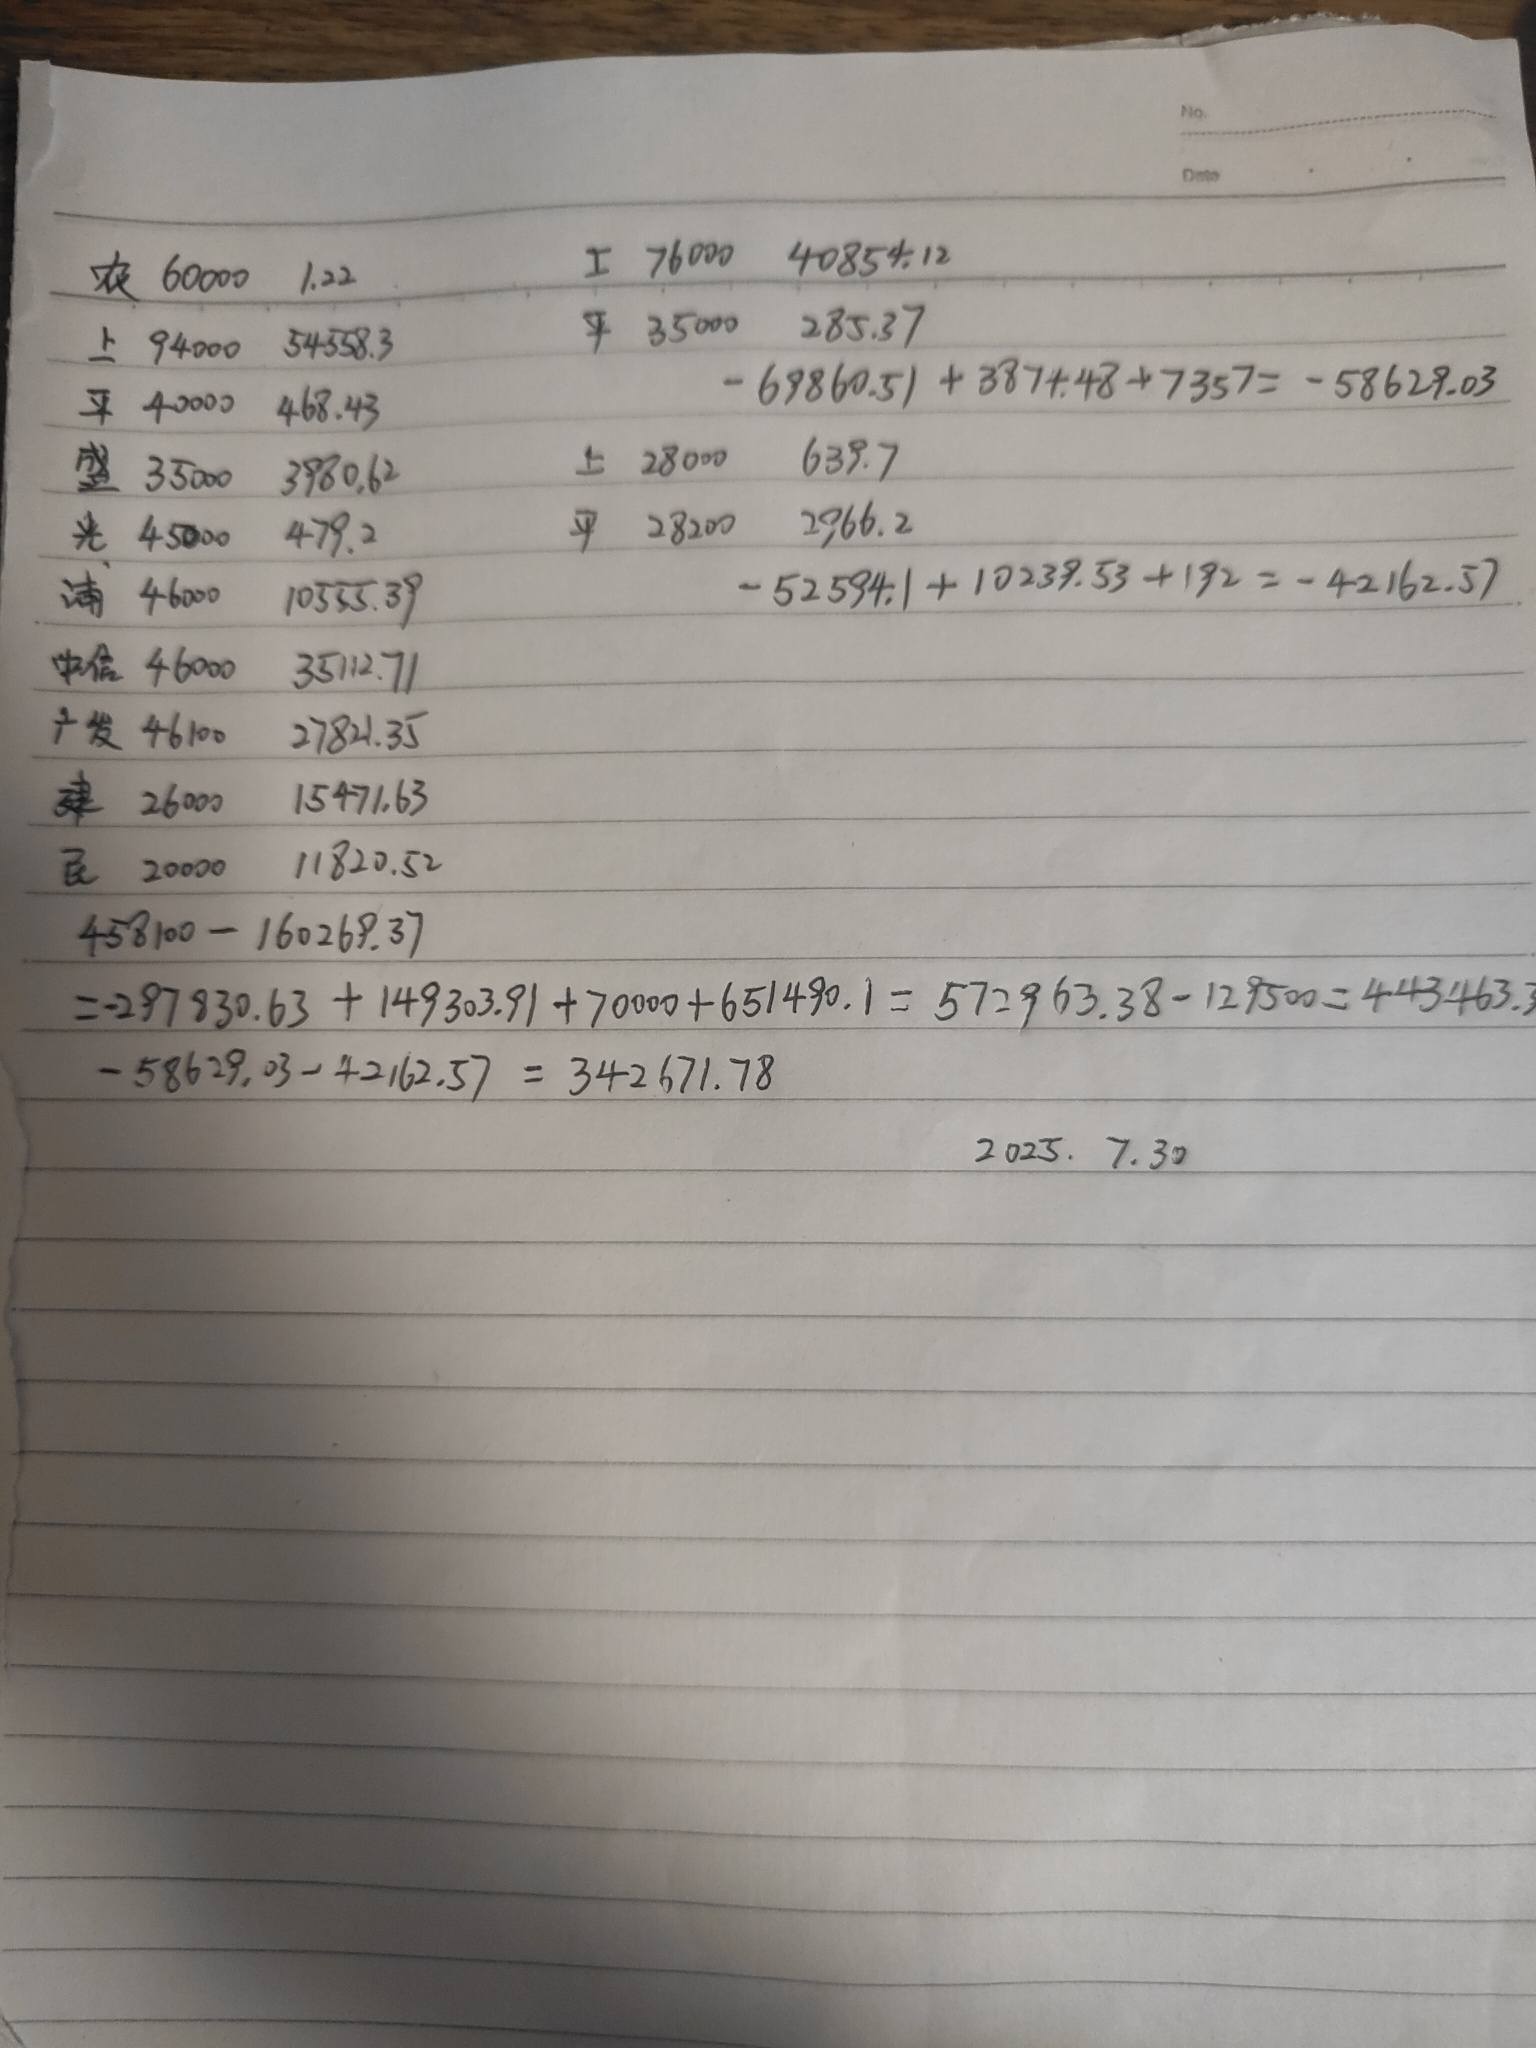 No.
Date
农 60000 1.22
上 94000 54558.3
平 40000 468.43
盛 35000 3980.62
光 45000 479.2
浦 46000 10555.39
中信 46000 35112.71
广发 46100 27821.35
建 26000 15471.63
民 20000 11820.52
工 76000 40854.12
平 35000 285.37
-69860.51 + 3874.48 + 7357 = -58629.03
上 28000 639.7
平 28200 2966.2
-52594.1 + 10239.53 + 192 = -42162.57
458100 - 160269.37
= -297830.63 + 149303.91 + 70000 + 651490.1 = 572963.38 - 129500 = 443463.3
-58629.03 - 42162.57 = 342671.78
2025. 7.30